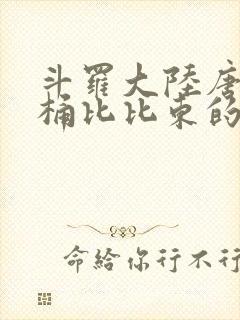 斗羅大陸唐
桶比比東的
命給你行不行